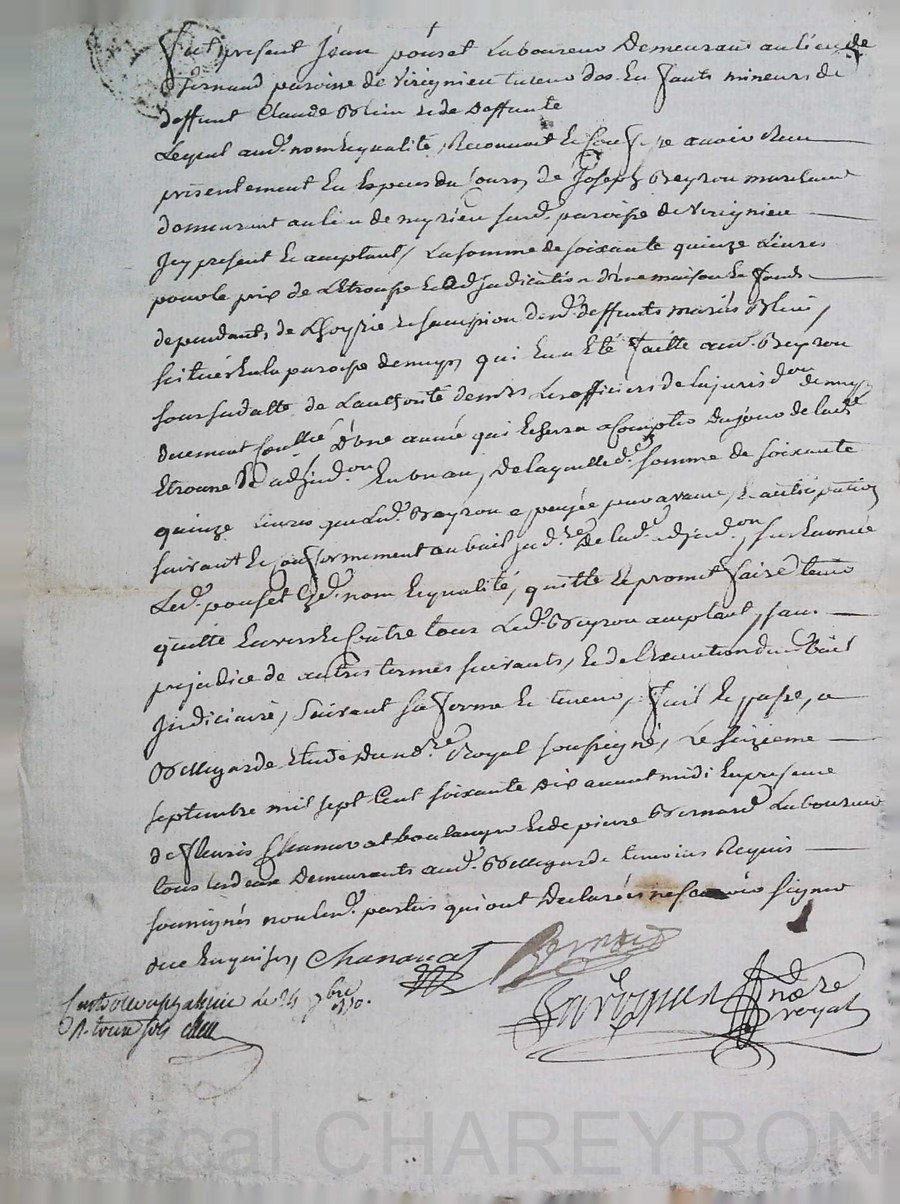 fut present Jean pouset Laboureur Demeurant au lieu de
fernaud paroisse de Virignieu tuteur des Enfants mineurs de
deffunt Claude Blein et de Deffunte
Lequel aud. nom Et qualité, Reconnoit et Confesse avoir Recu
presentement En Especes du Cours, de Joseph Beyron marchand
demeurant au lieu de meyrieu sud. paroisse de Virignieu
Icy present et acceptant, La somme de soixante quinze Livres
pour le prix de Letrousse et adjudication d'une maison et fonds
dependants de Lhoyrie et succession desd. deffunts mariés Blein,
scitués En la paroisse de meys, qui En a Eté faitte aud. Beyron
sous sa datte de Lauthorité de mrs. Les officiers de la jurisdon de meys
duement Conllé d'une année qui Echerra a Compter du jour de lade
Etrousse Et adjudon. En un an, de laquelle de. somme de soixante
quinze Livres que Led. Beyron a payée par avance, et anticipation
suivant et conformement au bail jud.re De lad.e adjudon, sur Lannée
Led. pouset Esd. nom Et qualité, quitte et promet faire tenir
quitte Envers et Contre tous Led. Beyron acceptant, sans
prejudice de autres termes suivants, et de l'Execution du Bail
Judiciaire, suivant sa forme et teneur, fait et passé, a
Bellegarde Etude du no.re Royal soussigné, Le seizieme
septembre mil sept Cent soixante dix avant midi En presence
de fleuris Chanavat boulanger et de pierre Bernard Laboureur
tous les deux Demeurants aud. Bellegarde temoins Requis
soussignés non lesd. parties qui ont Declarées ne scavoir signer
due Enquises, Chanavat Bernard
no.re royal
le 24 7bre 1770.